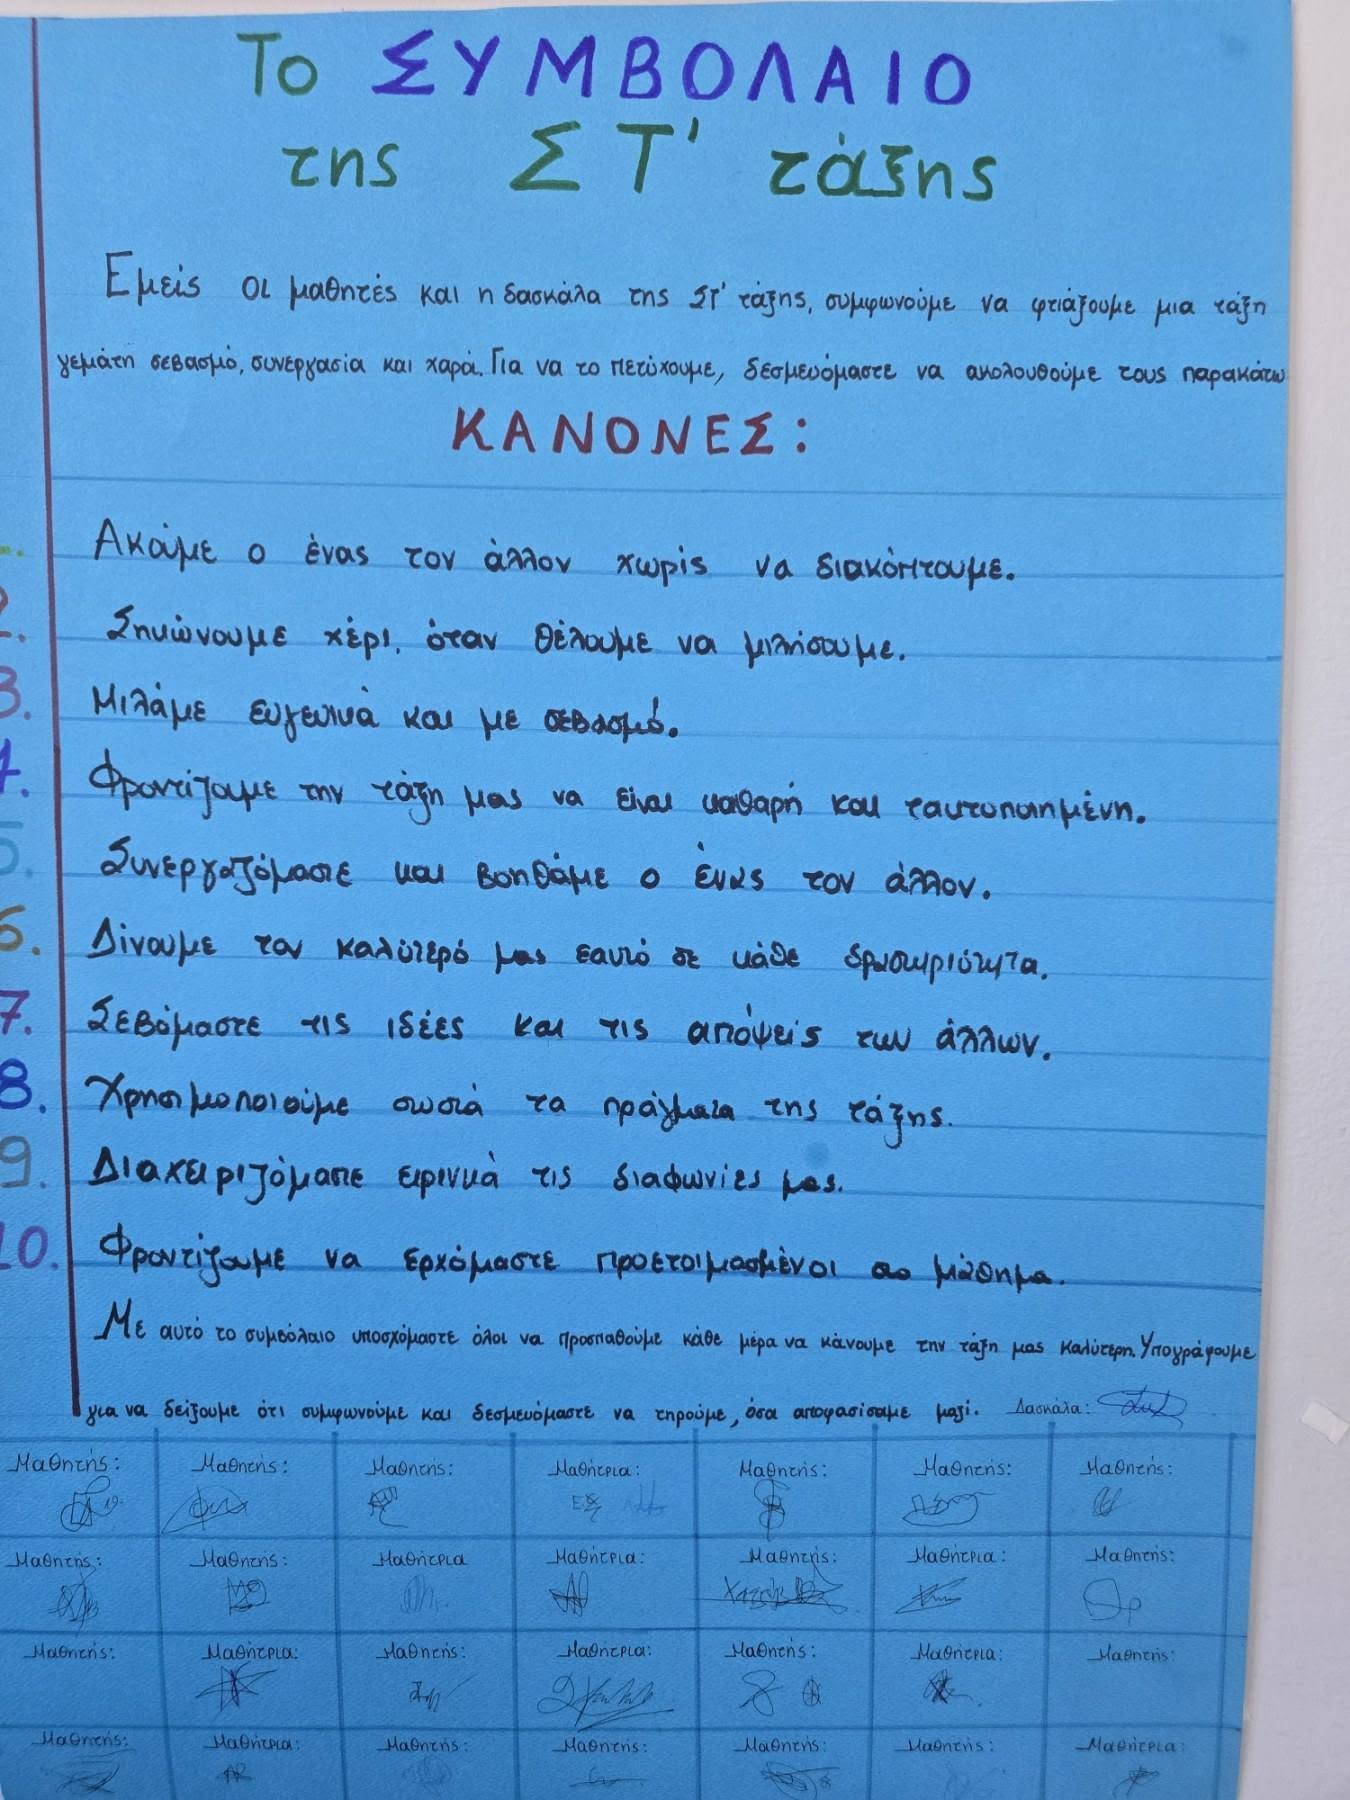 Το ΣΥΜΒΟΛΑΙΟ
της ΣΤ' τάξης
Εμείς οι μαθητές και η δασκάλα της ΣΤ' τάξης, συμφωνούμε να φτιάξουμε μια τάξη
γεμάτη σεβασμό, συνεργασία και χαρά. Για να το πετύχουμε, δεσμευόμαστε να ακολουθούμε τους παρακάτω
ΚΑΝΟΝΕΣ:
Ακούμε ο ένας τον άλλον χωρίς να διακόπτουμε.
2. Σηκώνουμε χέρι, όταν θέλουμε να μιλήσουμε.
3. Μιλάμε ευγενικά και με σεβασμό.
4. Φροντίζουμε την τάξη μας να είναι καθαρή και τακτοποιημένη.
5. Συνεργαζόμαστε και βοηθάμε ο ένας τον άλλον.
6. Δίνουμε τον καλύτερό μας εαυτό σε κάθε δραστηριότητα.
7. Σεβόμαστε τις ιδέες και τις απόψεις των άλλων.
8. Χρησιμοποιούμε σωστά τα πράγματα της τάξης.
9. Διαχειριζόμαστε ειρινικά τις διαφωνίες μας.
10. Φροντίζουμε να ερχόμαστε προετοιμασμένοι στο μάθημα.
Με αυτό το συμβόλαιο υποσχόμαστε όλοι να προσπαθούμε κάθε μέρα να κάνουμε την τάξη μας καλύτερη. Υπογράφουμε
για να δείξουμε ότι συμφωνούμε και δεσμευόμαστε να τηρούμε, όσα αποφασίσαμε μαζί. Δασκάλα:
Μαθητής: Μαθητής: Μαθητής: Μαθήτρια: Μαθητής: Μαθητής: Μαθητής:
Μαθητής: Μαθητής: Μαθήτρια Μαθήτρια: Μαθητής: Μαθήτρια: Μαθητής:
Μαθητής: Μαθήτρια: Μαθητής: Μαθήτρια: Μαθητής: Μαθήτρια: Μαθητής:
Μαθητής: Μαθήτρια: Μαθητής: Μαθητής: Μαθητής: Μαθητής: Μαθήτρια: